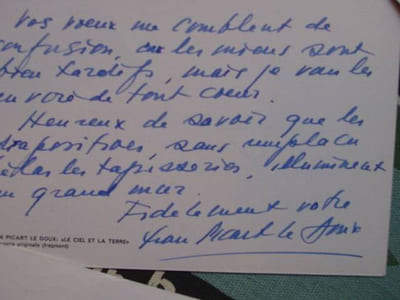 Vos voeux me comblent de
confusion, car les miens sont
bien tardifs, mais je vous les
envoie de tout coeur.
Heureux de savoir que les
diapositives, sans remplacer
hélas les tapisseries, illuminent
un grand mur.
Fidèlement votre
Jean Picart le Doux
N PICART LE DOUX: «LE CIEL ET LA TERRE»
serie originale (fragment)